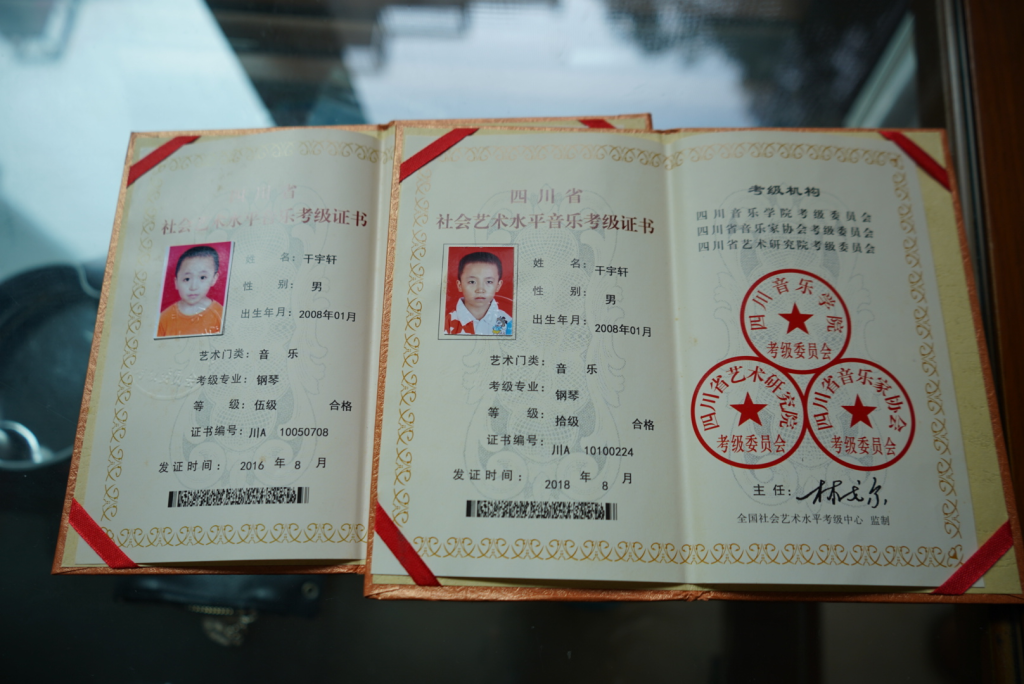 川省
社会艺术水平音乐考级证书
姓 名：干宇轩
性 别：男
出生年月：2008年01月
艺术门类：音 乐
考级专业：钢琴
等 级：伍级 合格
证书编号：川A 10050708
发证时间：2016 年 8 月
四川省
社会艺术水平音乐考级证书
姓 名：干宇轩
性 别：男
出生年月：2008年01月
艺术门类：音 乐
考级专业：钢琴
等 级：拾级 合格
证书编号：川A 10100224
发证时间：2018 年 8 月
考级机构
四川音乐学院考级委员会
四川省音乐家协会考级委员会
四川省艺术研究院考级委员会
四川音乐学院
考级委员会
四川省艺术研究院
考级委员会
四川省音乐家协会
考级委员会
主任：林戈尔
全国社会艺术水平考级中心 监制